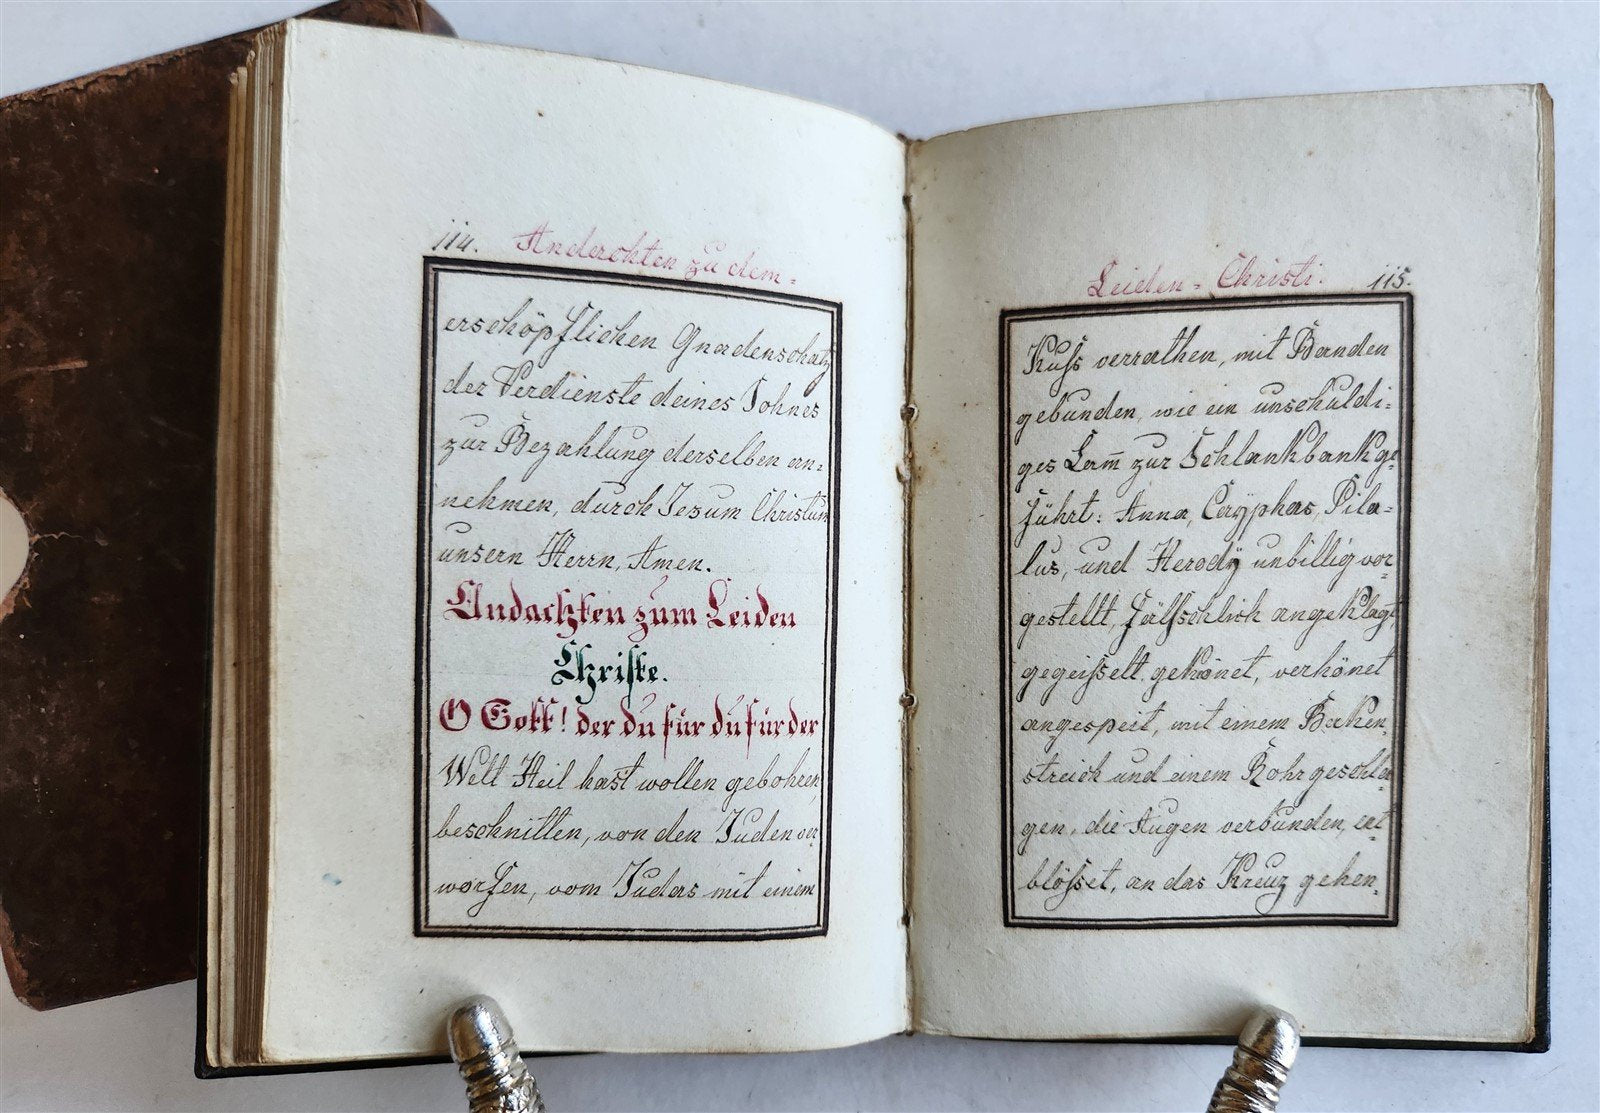 114. Anderchten zu dem=
erschöpflichen Gnadenschatz
der Verdienste deines Sohnes
zur Bezahlung derselben an=
nehmen, durch Jesum Christum
unsern Herrn, Amen.
Andachten zum Leiden
Christe.
O Gott! der du für du für der
Welt Heil hast wollen gebohren,
beschnitten, von den Juden ver=
worfen, vom Judas mit einem
Leiden = Christi. 115.
Kuss verrathen, mit Banden
gebunden, wie ein unschuldi=
ges Lam̅ zur Schlankbank ge=
führt: Anna, Cayphas, Pila=
lus, und Herody unbillig vor=
gestellt, fälfschlich angeklagt
gegeisselt gekönet, verhönet
angespeit, mit einem Baken=
streich und einem Rohr geschla
gen, die Augen verbunden, ent=
blösset, an das Kreuz gehen=